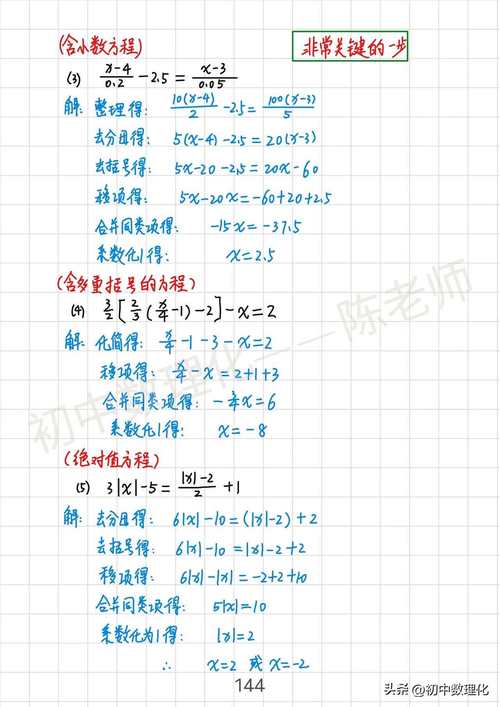 (含小数方程)
非常关键的一步
(3) (x-4)/0.2 - 2.5 = (x-3)/0.05
解: 整理得: 10(x-4)/2 - 2.5 = 100(x-3)/5
去分母得: 5(x-4)-2.5 = 20(x-3)
去括号得: 5x-20-2.5 = 20x-60
移项得: 5x-20x = -60+20+2.5
合并同类项得: -15x = -37.5
系数化1得: x = 2.5
(含多重括号的方程)
(4) 3/2[2/3(x/4-1)-2]-x=2
解: 化简得: x/4-1-3-x=2
移项得: x/4-x=2+1+3
合并同类项得: -3/4x=6
系数化1得: x=-8
(绝对值方程)
(5) 3|x|-5 = (|x|-2)/2 +1
解: 去分母得: 6|x|-10=(|x|-2)+2
去括号得: 6|x|-10=|x|-2+2
移项得: 6|x|-|x|=-2+2+10
合并同类项得: 5|x|=10
系数化为1得: |x|=2
∴ x=2 或 x=-2
144
初中数理化——陈老师
头条 @初中数理化